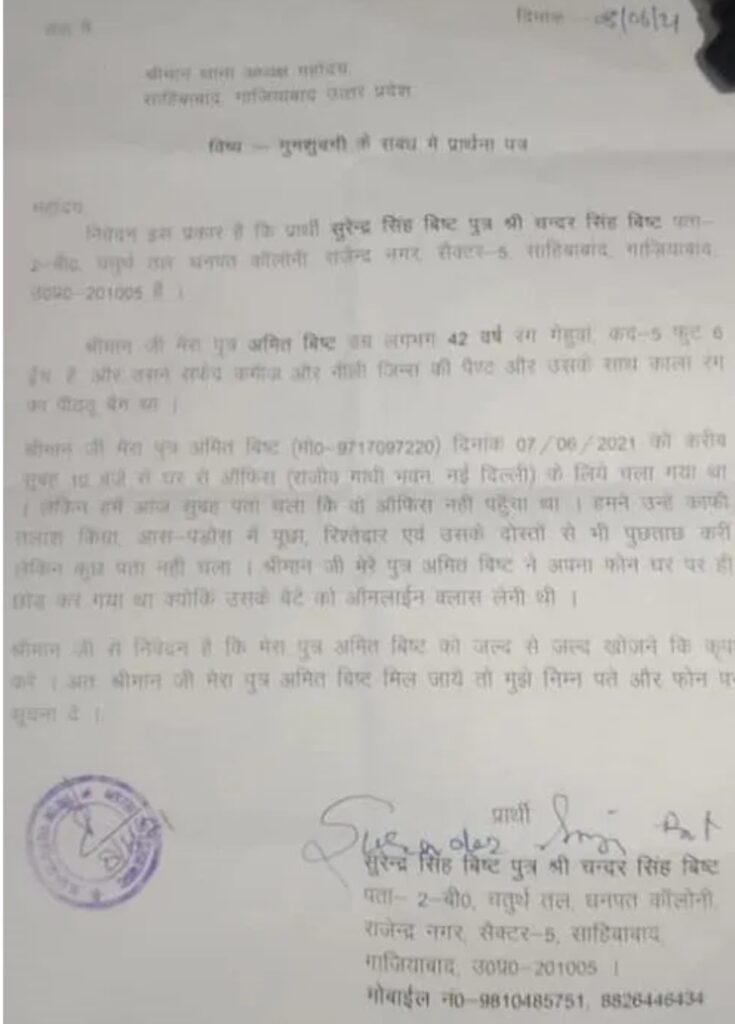 सेवा में
दिनांक - 08/06/21
श्रीमान थाना अध्यक्ष महोदय,
साहिबाबाद, गाजियाबाद उत्तर प्रदेश
विष्य - गुमशुदगी के सबंध मे प्रार्थना पत्र
महोदय
निवेदन इस प्रकार है कि प्रार्थी सुरेन्द्र सिंह बिष्ट पुत्र श्री चन्दर सिंह बिष्ट पता-
2-बी0, चतुर्थ तल धनपत कॉलोनी राजेन्द्र नगर, सैक्टर-5, साहिबाबाद, गाजियाबाद,
उ0प्र0-201005 है ।
श्रीमान जी मेरा पुत्र अमित बिष्ट उम्र लगभग 42 वर्ष रंग गेहुवां, कद-5 फुट 6
ईंच है और उसने सफेद कमीज और नीली जिन्स की पैण्ट और उसके साथ काला रंग
का पीठ्ठू बैग था ।
श्रीमान जी मेरा पुत्र अमित बिष्ट (मो0-9717097220) दिनांक 07/06/2021 को करीब
सुबह 10 बजे से घर से ऑफिस (राजीव गांधी भवन, नई दिल्ली) के लिये चला गया था
। लेकिन हमें आज सुबह पता चला कि वो ऑफिस नही पहुँचा था । हमने उन्हे काफी
तलाश किया, आस-पडोस में पूछा, रिश्तेदार एवं उसके दोस्तों से भी पुछताछ करी
लेकिन कुछ पता नही चला । श्रीमान जी मेरे पुत्र अमित बिष्ट ने अपना फोन घर पर ही
छोड कर गया था क्योकि उसके बेटे को ऑनलाईन क्लास लेनी थी ।
श्रीमान जी से निवेदन है कि मेरा पुत्र अमित बिष्ट को जल्द से जल्द खोजने कि कृपा
करे । अतः श्रीमान जी मेरा पुत्र अमित बिष्ट मिल जाये तो मुझे निम्न पते और फोन पर
सूचना दे ।
प्रार्थी
Surender Singh
सुरेन्द्र सिंह बिष्ट पुत्र श्री चन्दर सिंह बिष्ट
पता- 2-बी0, चतुर्थ तल, धनपत कॉलोनी,
राजेन्द्र नगर, सैक्टर-5, साहिबाबाद,
गाजियाबाद, उ0प्र0-201005 ।
मोबाईल नं0-9810485751, 8826446434